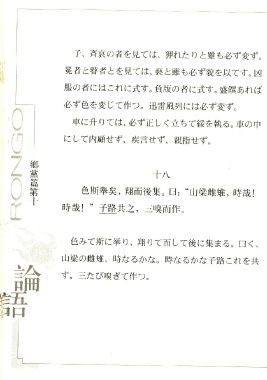 子、斉衰の者を見ては、狎れたりと雖も必ず変ず。
冕者と瞽者とを見ては、褻と雖も必ず貌を以てす。凶
服の者にはこれに式す。負版の者に式す。盛饌あれば
必ず色を変じて作つ。迅雷風烈には必ず変ず。
車に升りては、必ず正しく立ちて綏を執る。車の中
にして内顧せず、疾言せず、親指せず。
十八
色斯擧矣，翔而後集。曰：“山梁雌雉，時哉！
時哉！”子路共之，三嗅而作。
色みて斯に挙り、翔りて而して後に集まる。曰く、
山梁の雌雉、時なるかな。時なるかな子路これを共
す。三たび嗅ぎて作つ。
RONGO
郷黨篇第十
論語